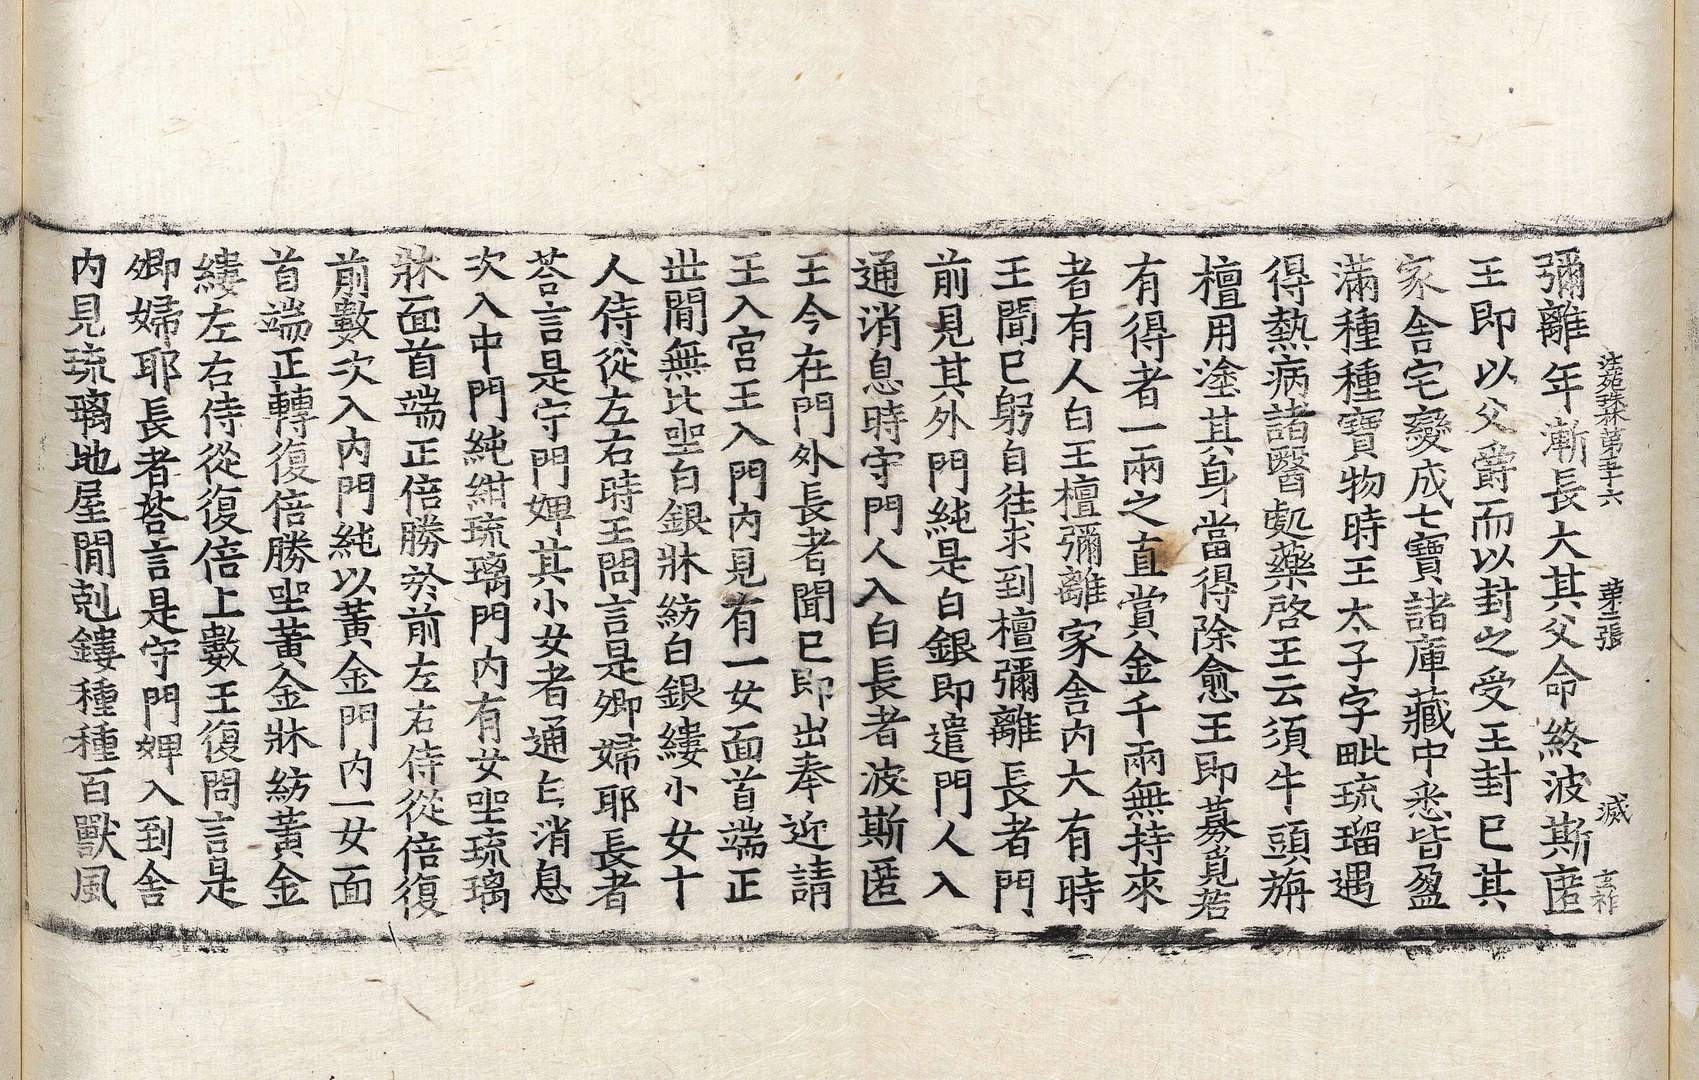 法苑珠林第五十六 第二張 滅
彌離年漸長大其父命終波斯匿
王即以父爵而以封之受王封已其
家舍宅變成七寶諸庫藏中悉皆盈
滿種種寶物時王太子字毗琉瑠遇
得熱病諸醫處藥啓王云須牛頭旃
檀用塗其身當得除愈王即募覓若
有得者一兩之直賞金千兩無持來
者有人白王檀彌離家舍內大有時
王聞已躬自往求到檀彌離長者門
前見其外門純是白銀即遣門人入
通消息時守門人入白長者波斯匿
王今在門外長者聞已即出奉迎請
王入宮王入門內見有一女面首端正
世間無比坐白銀牀紡白銀縷小女十
人侍從左右時王問言是卿婦耶長者
荅言是守門婢其小女者通白消息
次入中門純紺琉璃門內有女坐琉璃
牀面首端正倍勝於前左右侍從倍復
前數次入內門純以黃金門內一女面
首端正轉復倍勝坐黃金牀紡黃金
縷左右侍從復倍上數王復問言是
卿婦耶長者荅言是守門婢入到舍
內見琉璃地屋間剋鏤種種百獸風